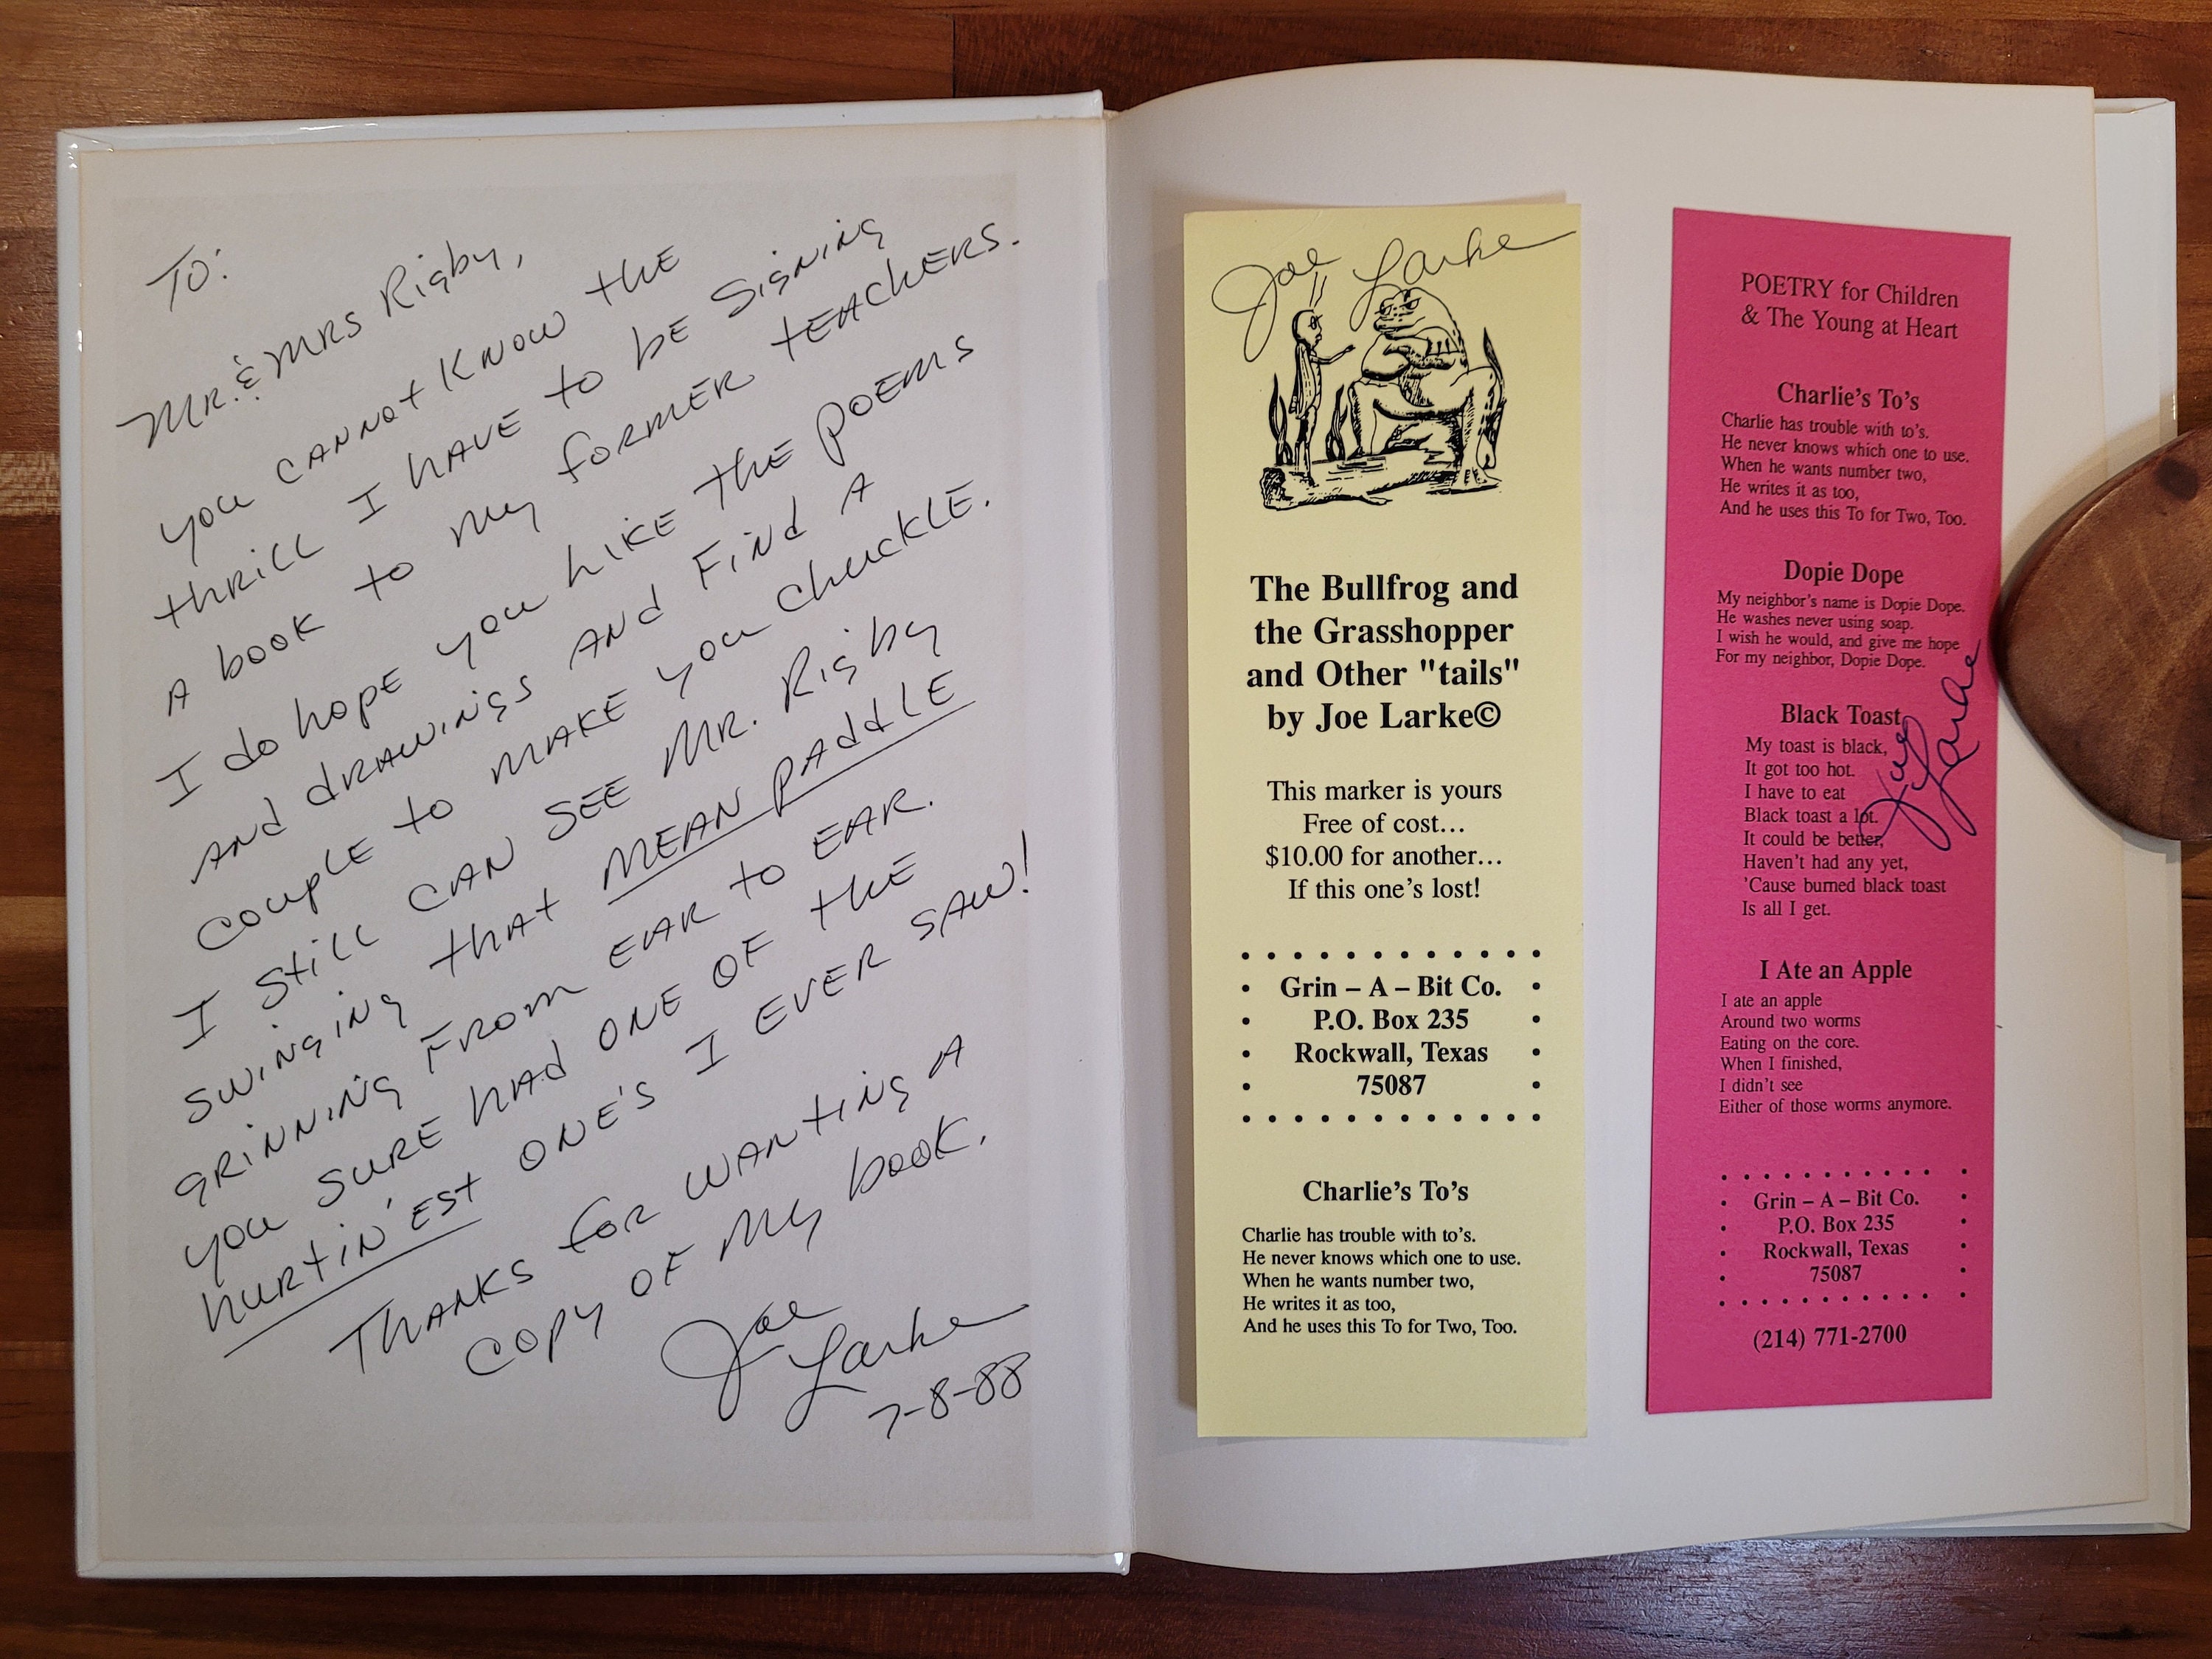 To:
Mr. & Mrs Rigby,
You cannot know the
thrill I have to be signing
a book to my former teachers.
I do hope you like the poems
and drawings and find a
couple to make you chuckle.
I still can see Mr. Rigby
swinging that mean paddle
grinning from ear to ear.
You sure had one of the
hurtin'est one's I ever saw!
Thanks for wanting a
copy of my book.
Joe
Larke
7-8-88
Joe Larke
The Bullfrog and
the Grasshopper
and Other "tails"
by Joe Larke©
This marker is yours
Free of cost...
$10.00 for another...
If this one's lost!
Grin – A – Bit Co.
P.O. Box 235
Rockwall, Texas
75087
Charlie's To's
Charlie has trouble with to's.
He never knows which one to use.
When he wants number two,
He writes it as too,
And he uses this To for Two, Too.
POETRY for Children
& The Young at Heart
Charlie's To's
Charlie has trouble with to's.
He never knows which one to use.
When he wants number two,
He writes it as too,
And he uses this To for Two, Too.
Dopie Dope
My neighbor's name is Dopie Dope.
He washes never using soap.
I wish he would, and give me hope
For my neighbor, Dopie Dope.
Black Toast
My toast is black,
It got too hot.
I have to eat
Black toast a lot.
It could be better,
Haven't had any yet,
'Cause burned black toast
Is all I get.
Joe Larke
I Ate an Apple
I ate an apple
Around two worms
Eating on the core.
When I finished,
I didn't see
Either of those worms anymore.
Grin – A – Bit Co.
P.O. Box 235
Rockwall, Texas
75087
(214) 771-2700